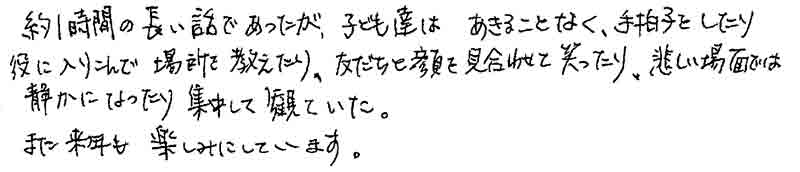 約1時間の長い話であったが、子ども達は あきることなく、手拍子をしたり
役に入りこんで 場所を教えたり、友だちと顔を見合わせて笑ったり、悲しい場面では
静かになったり 集中して観ていた。
また来年も 楽しみにしています。